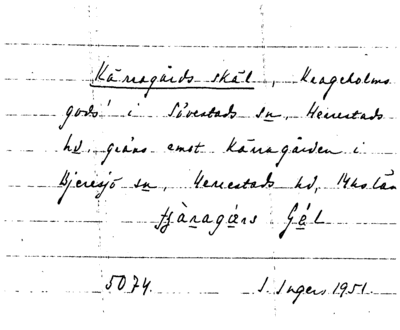 Kärragårds skäl, Krageholms
gods i Sövestads sn, Herrestads
hd, gräns emot Kärragården i
Bjeresjö sn, Herrestads hd, M-hs län
5074. I. Ingers 1951.